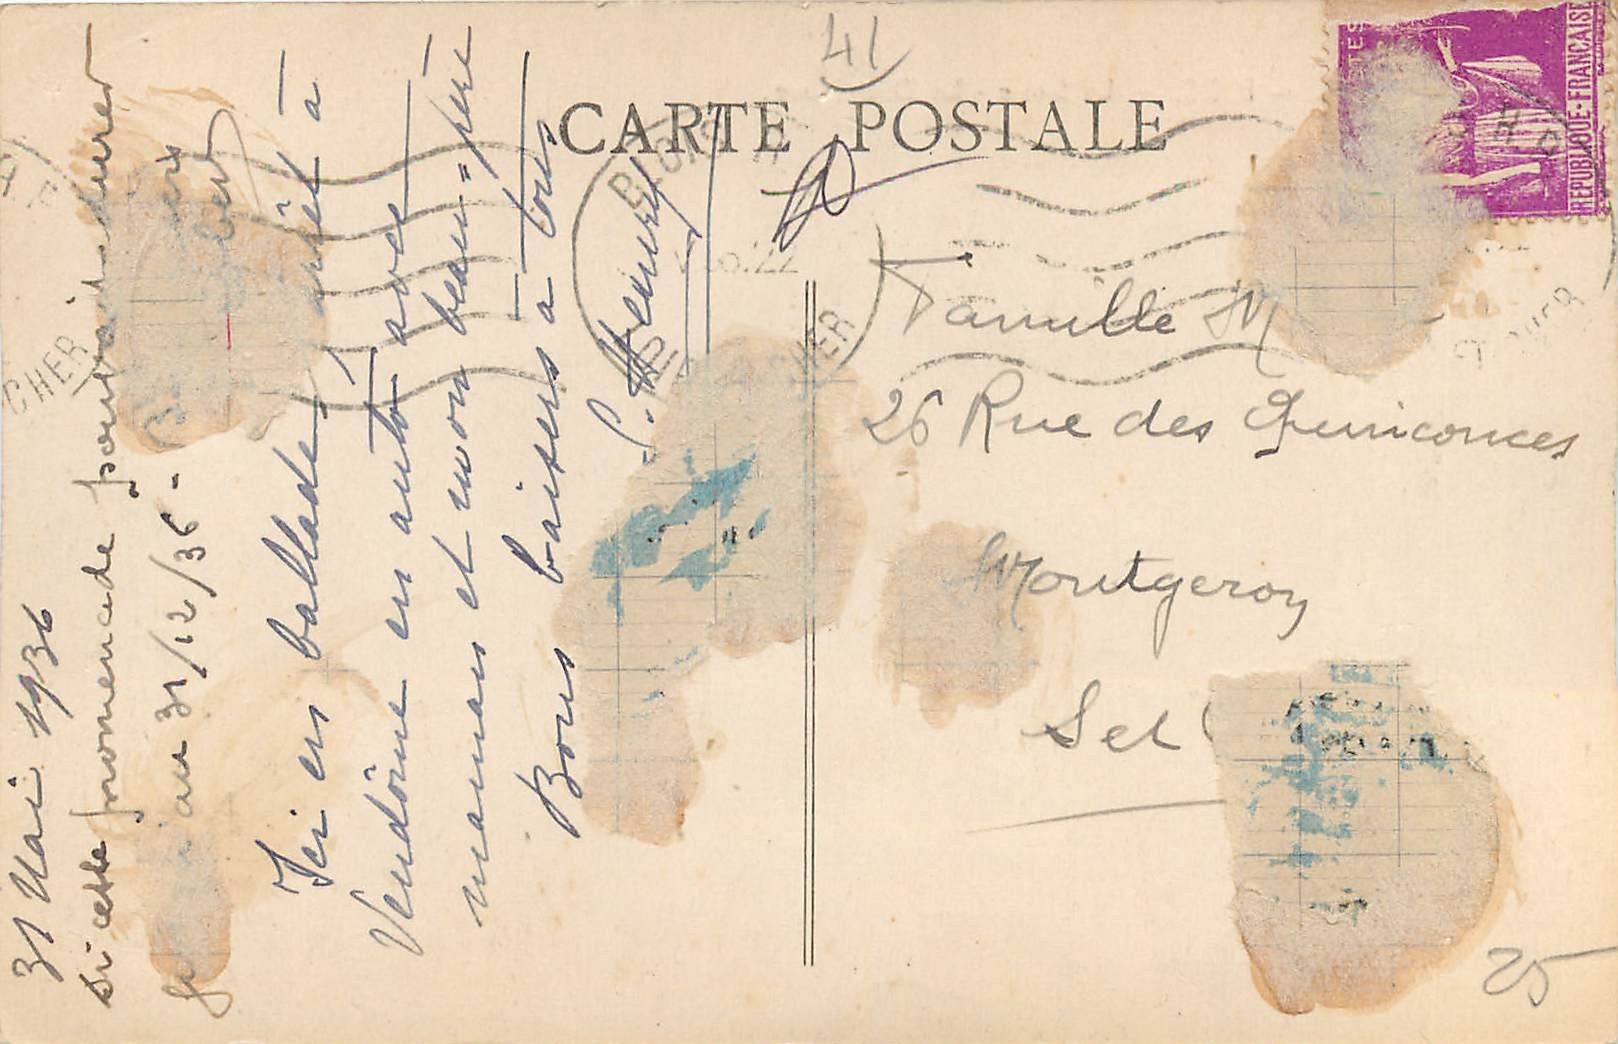 41
CARTE POSTALE
REPUBLIQUE-FRANCAISE
TES
CHER
BLOIS
CHER
CHER
31 Mai 1936
Si cette promenade pouvait durer
au 31/12/36 -
Ici en ballade, arrêt à
Vendôme en auto avec
maman et mon beau-père
Bons baisers à tous
Henry
Famille M
26 Rue des Quinconces
Montgeron
Set
25